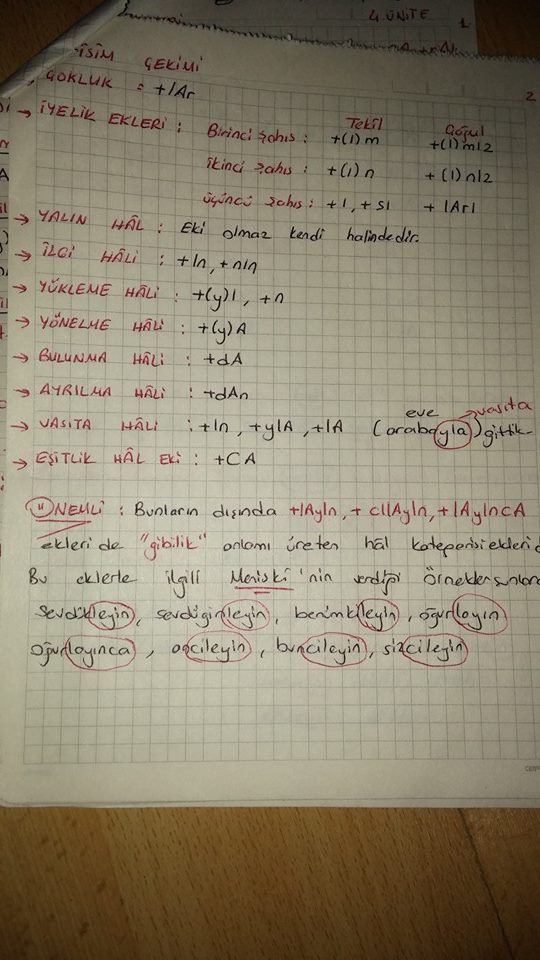 4. ÜNİTE 1
İSİM ÇEKİMİ
2
ÇOKLUK : +lAr
Tekil Çoğul
→ İYELİK EKLERİ : Birinci şahıs : +(I)m +(I)mIz
İkinci şahıs : +(I)n +(I)nIz
üçüncü şahıs : +I, +sI +lArI
→ YALIN HÂL : Eki olmaz kendi halindedir.
→ İLGİ HÂLİ : +In, +nIn
→ YÜKLEME HÂLİ : +(y)I, +n
→ YÖNELME HÂLİ : +(y)A
→ BULUNMA HÂLİ : +dA
→ AYRILMA HÂLİ : +dAn
eve → vasıta
→ VASITA HÂLİ : +In, +ylA, +lA (arabayla) gittik.
→ EŞİTLİK HÂL EKİ : +CA
ÖNEMLİ : Bunların dışında +lAyIn, + cIlAyIn, +lAyIncA
ekleri de "gibilik" anlamı üreten hâl kategorisi
Bu eklerle ilgili Meniski'nin verdiği örnekler
sevdikleyin, sevdiginleyin, benimkileyin, oğurlayın
oğurlayınca, ancileyin, buncileyin, sizcileyin